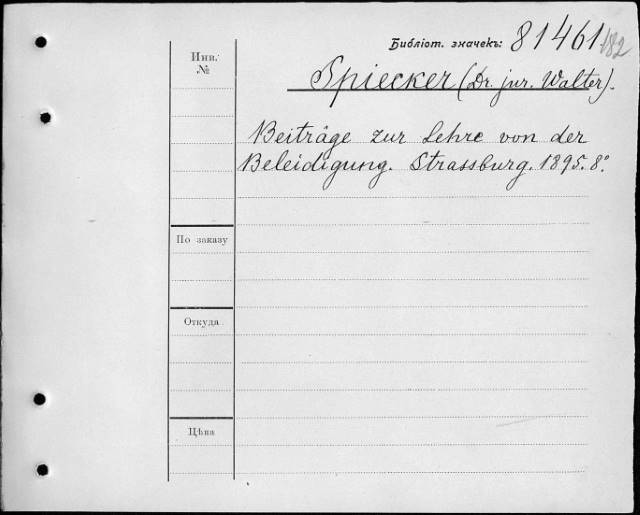 Библіот. значекъ: 81461/182
Инв.
№
Spiecker (Dr. jur. Walter).
Beiträge zur Lehre von der
Beleidigung. Strassburg. 1895. 8°.
По заказу
Откуда
Цѣна